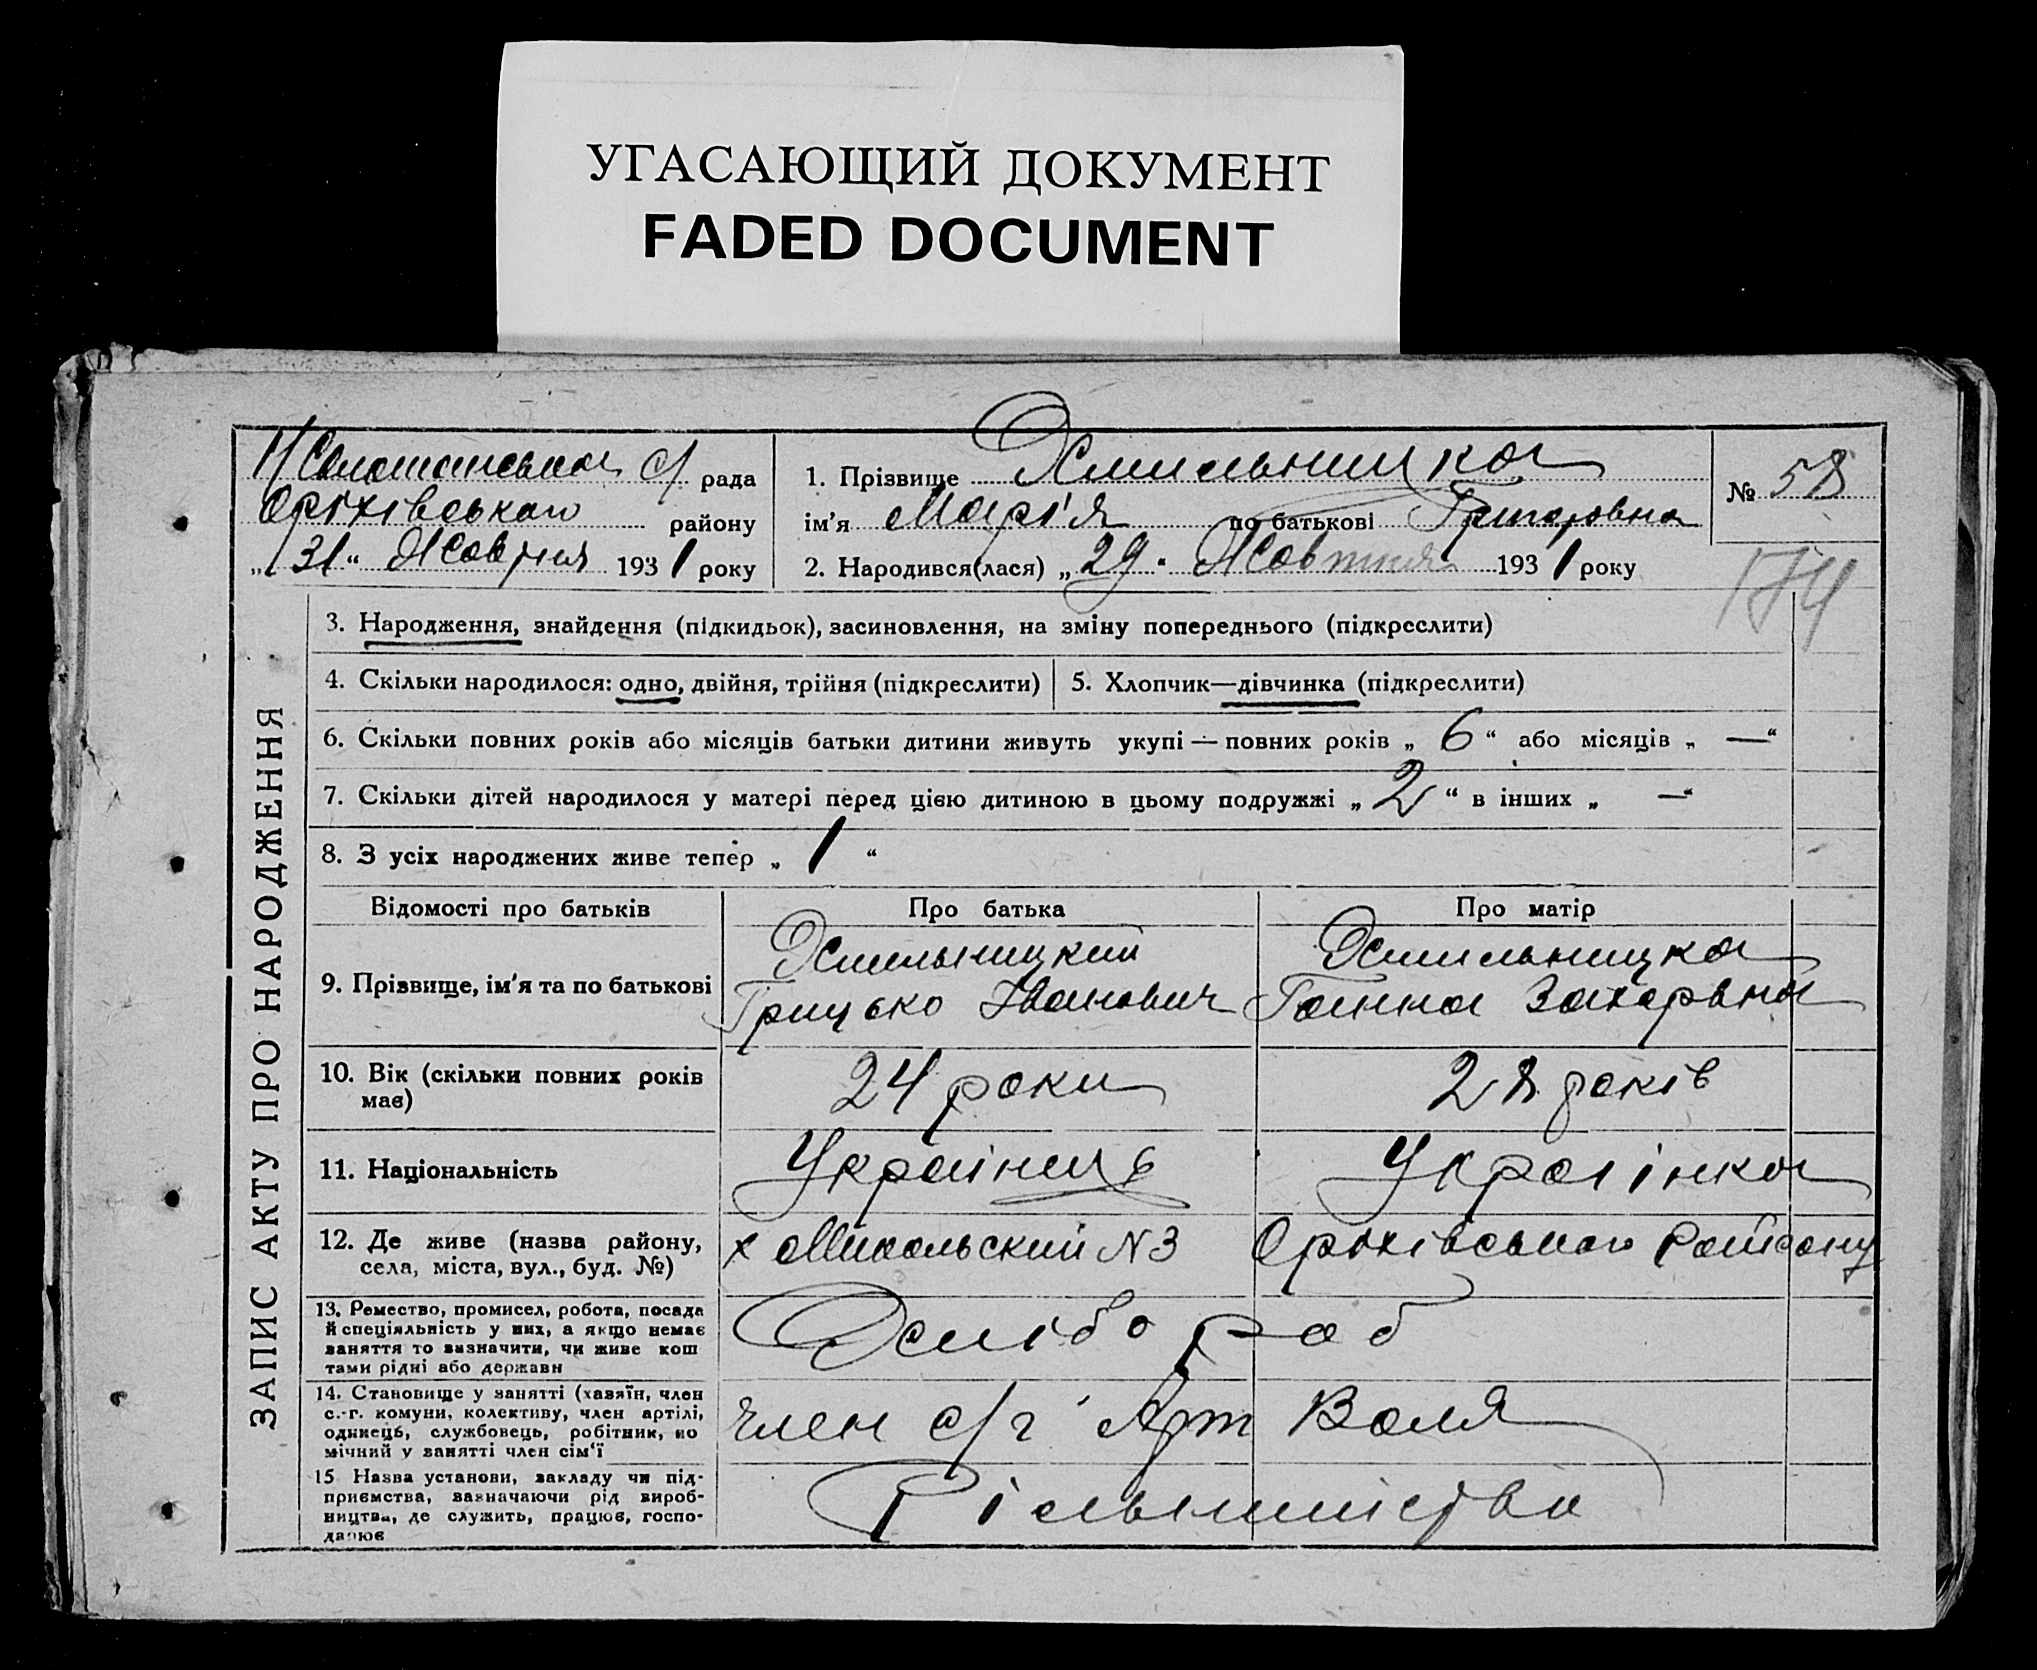 УГАСАЮЩИЙ ДОКУМЕНТ
FADED DOCUMENT
с/ рада
Оріхівського району
„31“ Жовтня 1931 року
1. Прізвище Хмильницка
ім'я Марія по батькові Григоровна
2. Народився(лася) „29. Жовтня 1931 року
№ 58
174
ЗАПИС АКТУ ПРО НАРОДЖЕННЯ
3. Народження, знайдення (підкидьок), засиновлення, на зміну попереднього (підкреслити)
4. Скільки народилося: одно, двійня, трійня (підкреслити)
5. Хлопчик—дівчинка (підкреслити)
6. Скільки повних років або місяців батьки дитини живуть укупі — повних років „ 6 “ або місяців „ — “
7. Скільки дітей народилося у матері перед цією дитиною в цьому подружжі „ 2 “ в інших „ — “
8. З усіх народжених живе тепер „ 1 “
Відомості про батьків
Про батька
Про матір
9. Прізвище, ім'я та по батькові
Хмильницкий
Грицько Іванович
Хмильницка
Ганна Захарьвна
10. Вік (скільки повних років
має)
24 роки
28 років
11. Національність
Українць
Українка
12. Де живе (назва району,
села, міста, вул., буд. №)
х Микольский N3 Оріхівського Району
13. Ремество, промисел, робота, посада
й спеціяльність у них, а якщо немає
заняття то визначити, чи живе кош
тами рідні або держави
Хлібороб
14. Становище у занятті (хазяїн, член
с.-г. комуни, колективу, член артілі,
одинець, службовець, робітник, по
мічний у занятті член сім'ї
член с/г Арт Воля
15 Назва установи, закладу чи під-
приємства, зазначаючи рід вироб-
ництва, де служить, працює, госпо-
дарює
Рільництво